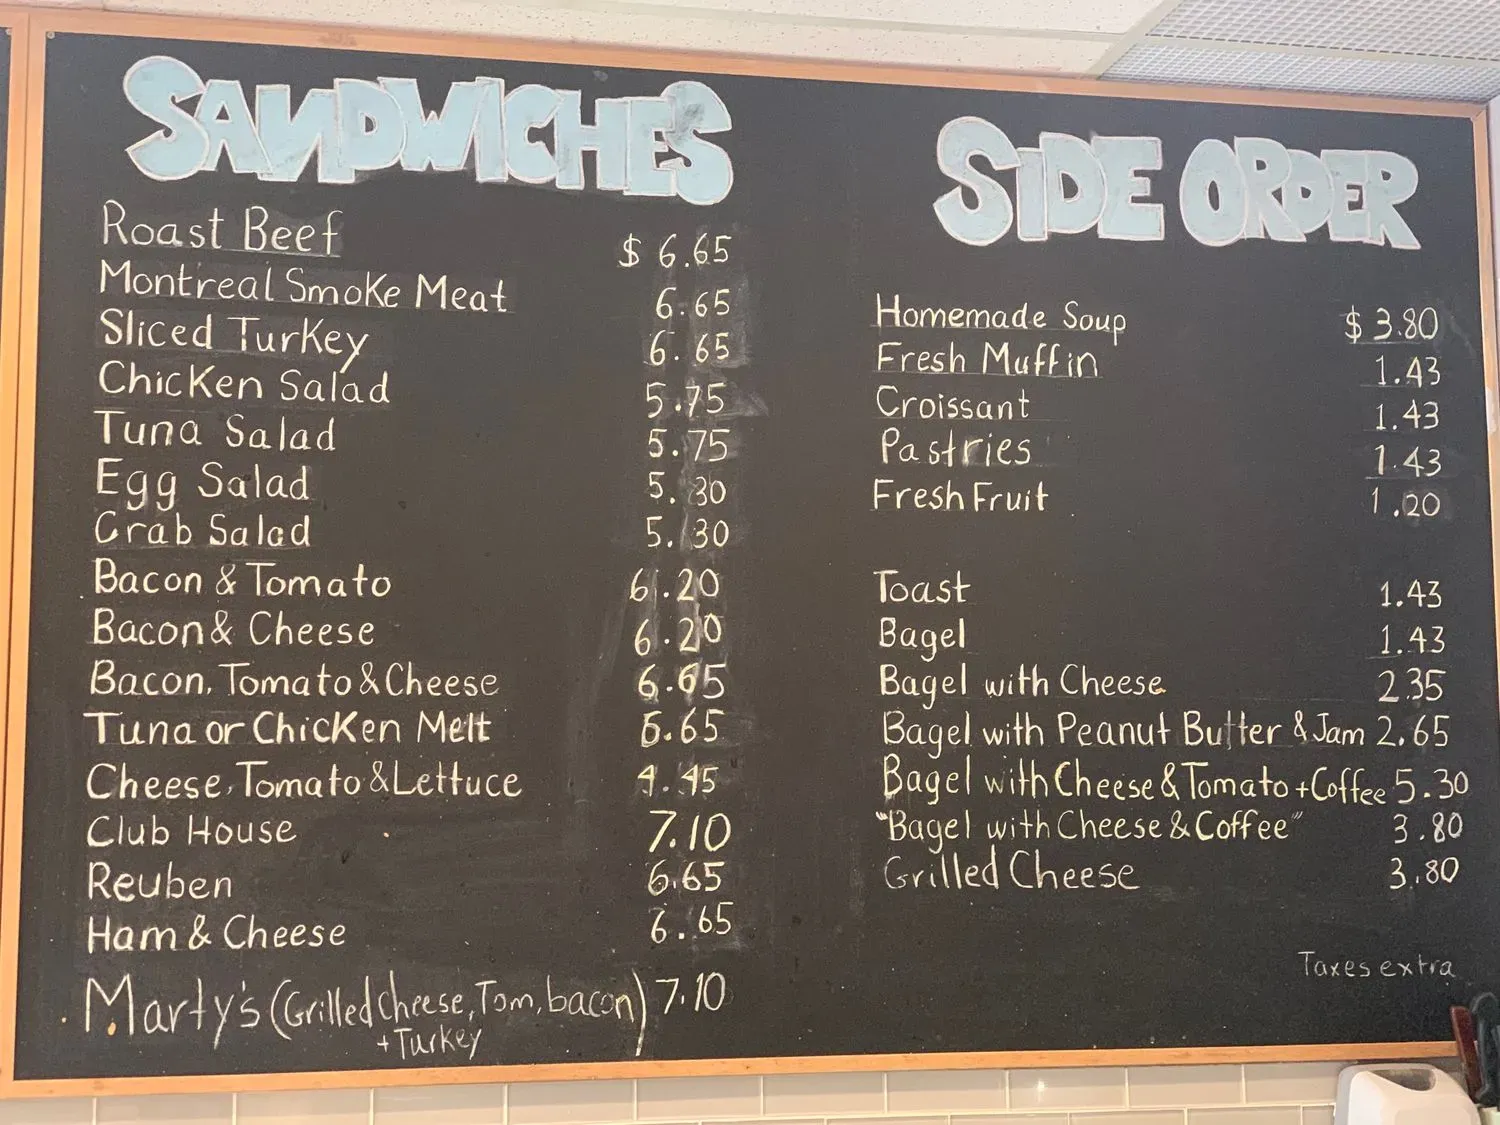 SANDWICHES
Roast Beef $ 6.65
Montreal Smoke Meat 6.65
Sliced Turkey 6.65
Chicken Salad 5.75
Tuna Salad 5.75
Egg Salad 5.30
Crab Salad 5.30
Bacon & Tomato 6.20
Bacon & Cheese 6.20
Bacon, Tomato & Cheese 6.65
Tuna or Chicken Melt 6.65
Cheese, Tomato & Lettuce 4.45
Club House 7.10
Reuben 6.65
Ham & Cheese 6.65
Marty's (Grilled Cheese, Tom, bacon) 7.10
+ Turkey
SIDE ORDER
Homemade Soup $ 3.80
Fresh Muffin 1.43
Croissant 1.43
Pastries 1.43
Fresh Fruit 1.20
Toast 1.43
Bagel 1.43
Bagel with Cheese 2.35
Bagel with Peanut Butter & Jam 2.65
Bagel with Cheese & Tomato + Coffee 5.30
"Bagel with Cheese & Coffee" 3.80
Grilled Cheese 3.80
Taxes extra